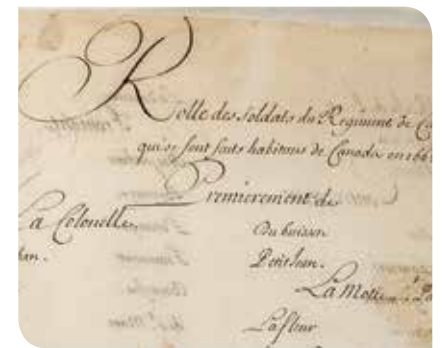 Rolle des soldats du Regiment de Ca
qui se sont faits habitans de Canada en 166
Premierement de
La Colonelle.
Du buisson
Petit Jean.
La Motte
Lafleur